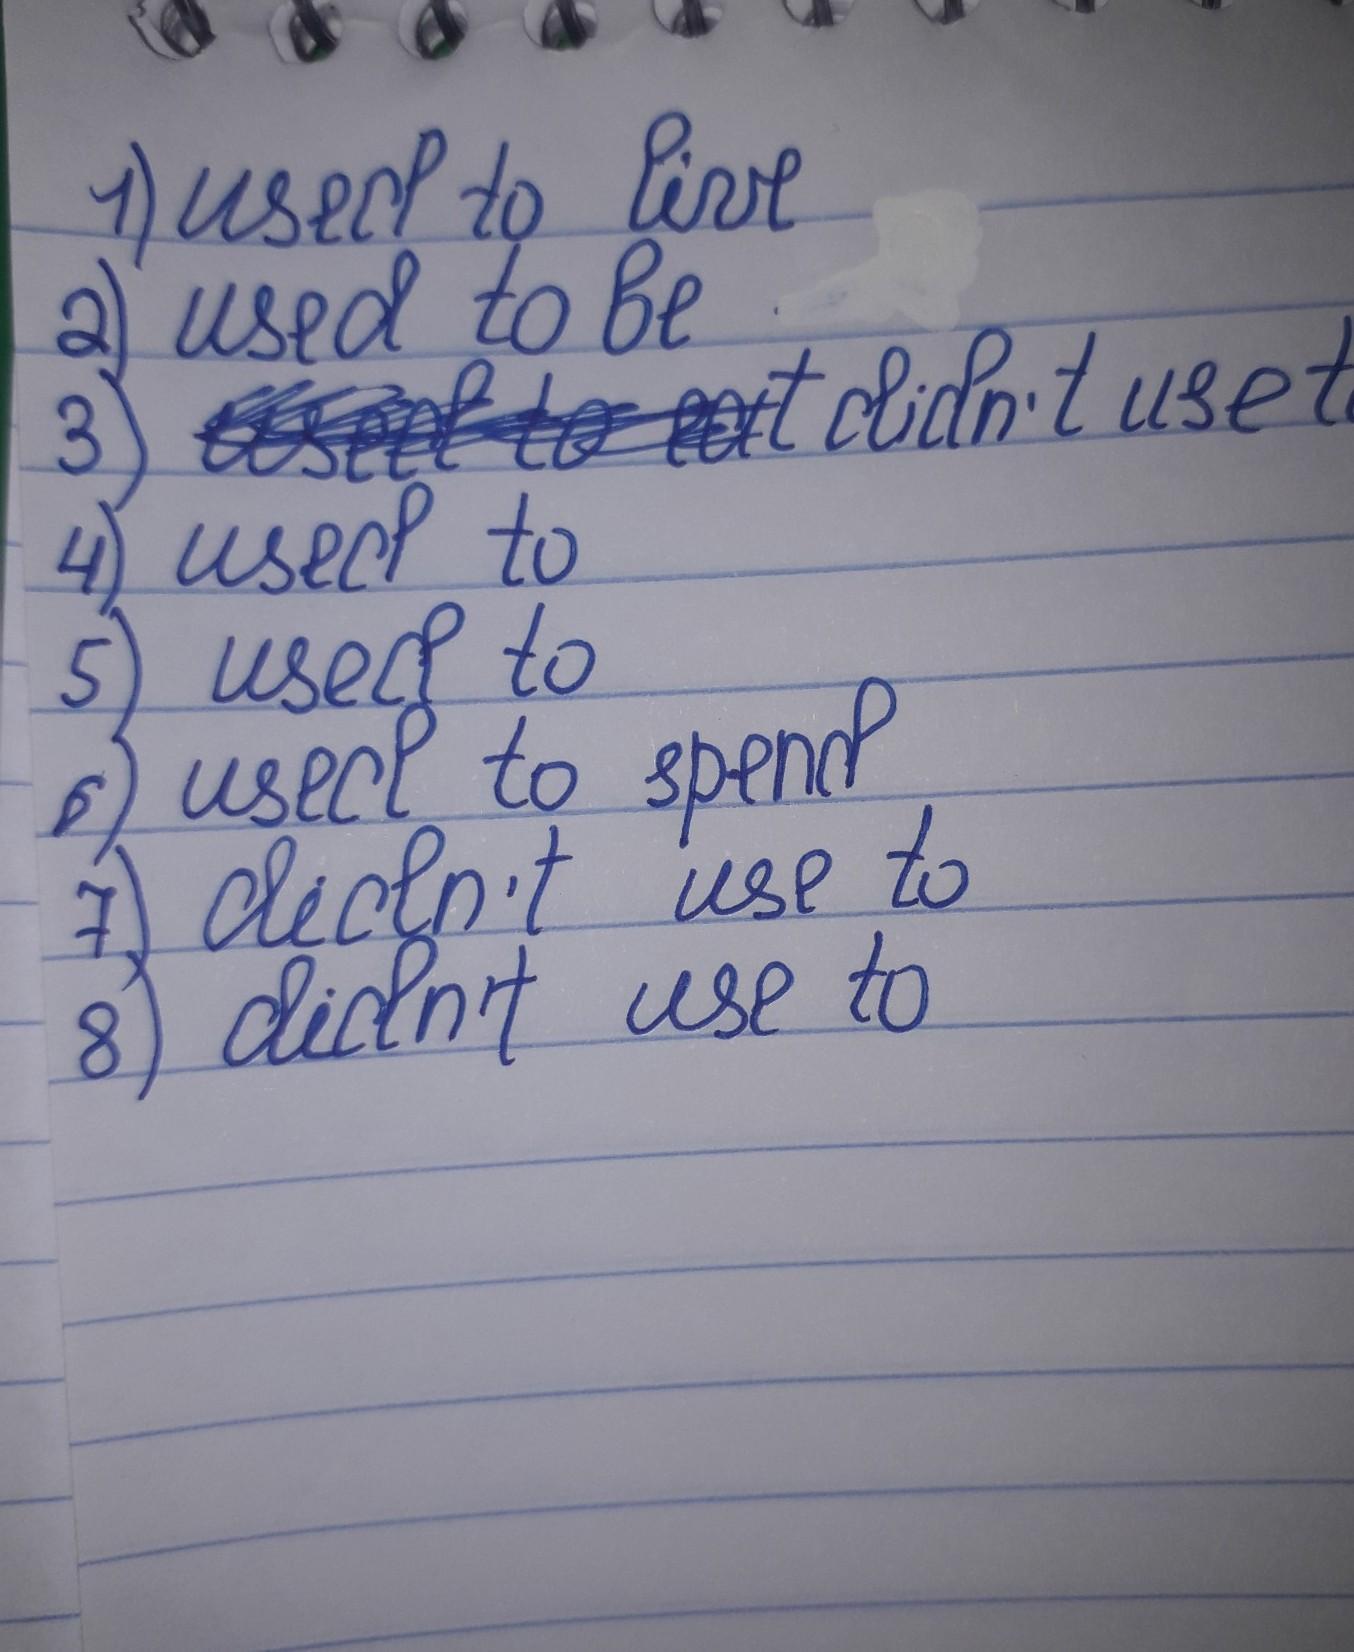 1) used to live
2) used to be
3) didn't use t
4) used to
5) used to
6) used to spend
7) didn't use to
8) didn't use to